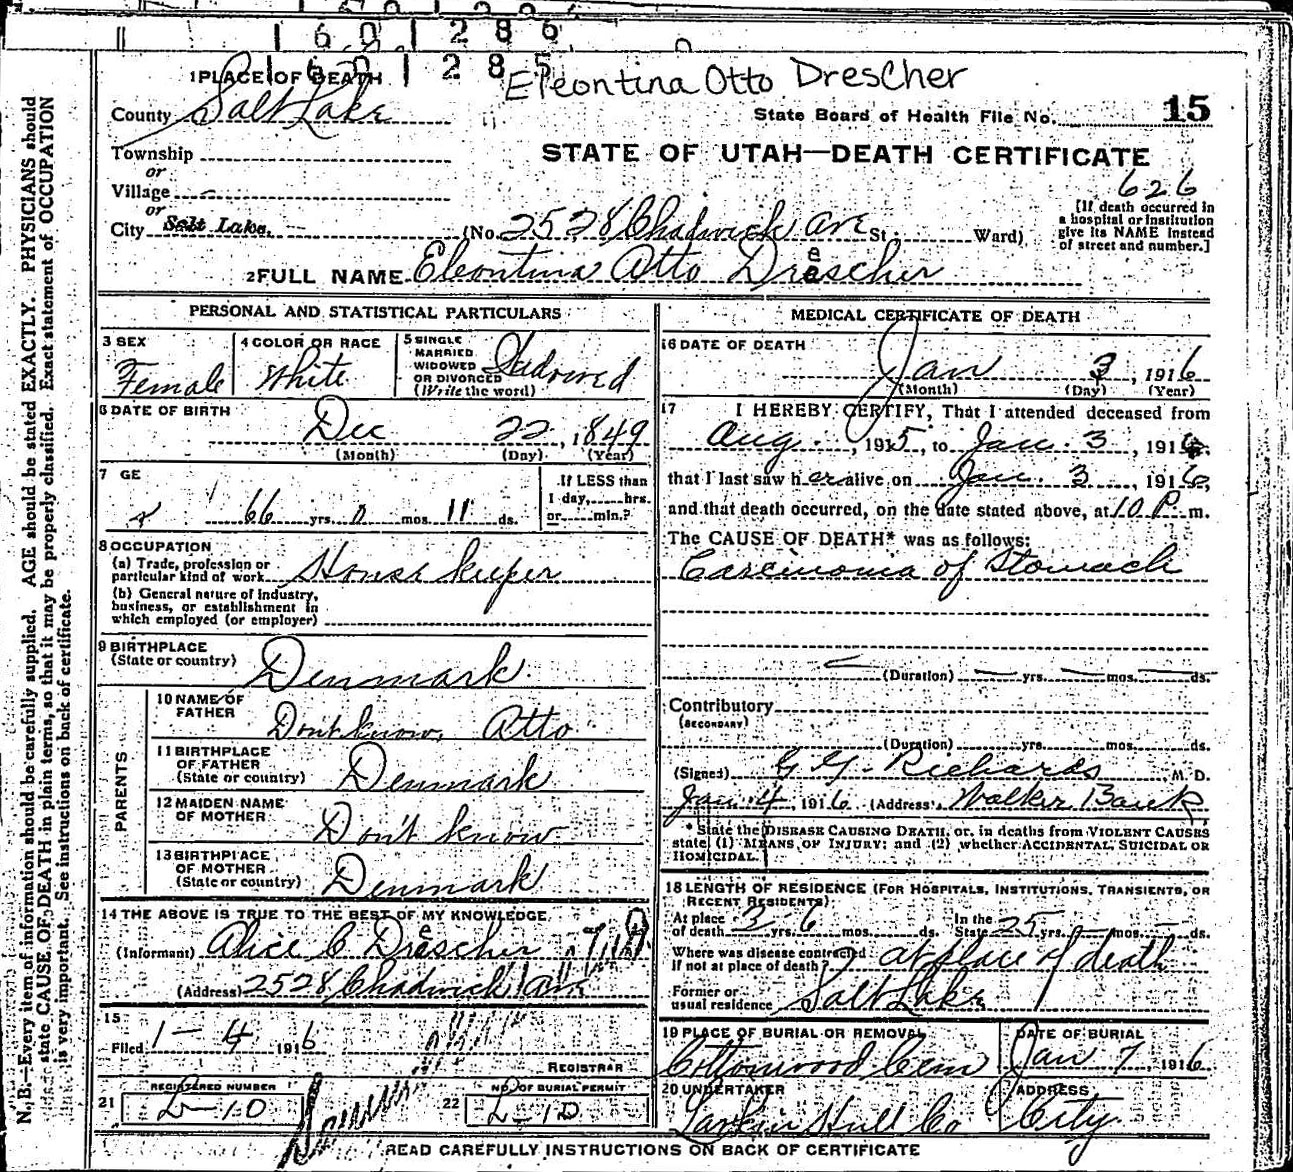 1 6 0 1 2 8 6
1 6 0 1 2 8 5
Eleontina Otto Drescher
1 PLACE OF DEATH
County Salt Lake
State Board of Health File No. 15
Township
or
Village
or
City Salt Lake.
STATE OF UTAH—DEATH CERTIFICATE
626
(No. 2528 Chadwick Ave St. Ward)
[If death occurred in
a hospital or institution
give its NAME instead
of street and number.]
2 FULL NAME Eleontina Otto Drescher
PERSONAL AND STATISTICAL PARTICULARS
3 SEX
Female
4 COLOR OR RACE
White
5 SINGLE
MARRIED
WIDOWED
OR DIVORCED
(Write the word)
Widowed
6 DATE OF BIRTH
Dec 22, 1849
(Month) (Day) (Year)
7 GE
66 yrs. 0 mos. 11 ds.
If LESS than
1 day, hrs.
or min.?
8 OCCUPATION
(a) Trade, profession or
particular kind of work House keeper
(b) General nature of industry,
business, or establishment in
which employed (or employer)
9 BIRTHPLACE
(State or country) Denmark
PARENTS
10 NAME OF
FATHER Don't know Otto
11 BIRTHPLACE
OF FATHER
(State or country) Denmark
12 MAIDEN NAME
OF MOTHER Don't know
13 BIRTHPLACE
OF MOTHER
(State or country) Denmark
14 THE ABOVE IS TRUE TO THE BEST OF MY KNOWLEDGE
(Informant) Alice C Drescher
(Address) 2528 Chadwick
15
Filed 1-4 1916
REGISTRAR
21 REGISTERED NUMBER
L-10
22 NO. OF BURIAL PERMIT
L-10
MEDICAL CERTIFICATE OF DEATH
16 DATE OF DEATH
Jan 3, 1916
(Month) (Day) (Year)
17 I HEREBY CERTIFY, That I attended deceased from
Aug. , 1915, to Jan. 3, 1916,
that I last saw her alive on Jan. 3, 1916,
and that death occurred, on the date stated above, at 10 P. m.
The CAUSE OF DEATH* was as follows:
Carcinonia of Stomach
(Duration) yrs. mos. ds.
Contributory
(SECONDARY)
(Duration) yrs. mos. ds.
(Signed) G. G. Richards M. D.
Jan. 4, 1916 (Address) Walker Bank
* State the DISEASE CAUSING DEATH, or, in deaths from VIOLENT CAUSES
state (1) MEANS OF INJURY; and (2) whether ACCIDENTAL, SUICIDAL OR
HOMICIDAL.
18 LENGTH OF RESIDENCE (FOR HOSPITALS, INSTITUTIONS, TRANSIENTS, OR
RECENT RESIDENTS)
At place
of death 3 yrs. 6 mos. ds. In the
State 25 yrs. mos. ds.
Where was disease contracted
if not at place of death? at place of death
Former or
usual residence Salt Lake
19 PLACE OF BURIAL OR REMOVAL
Cottonwood Cem
DATE OF BURIAL
Jan 7, 1916
20 UNDERTAKER
Larkin Hull Co
ADDRESS
City
READ CAREFULLY INSTRUCTIONS ON BACK OF CERTIFICATE
N. B.—Every item of information should be carefully supplied. AGE should be stated EXACTLY. PHYSICIANS should
state CAUSE OF DEATH in plain terms, so that it may be properly classified. Exact statement of OCCUPATION
is very important. See instructions on back of certificate.